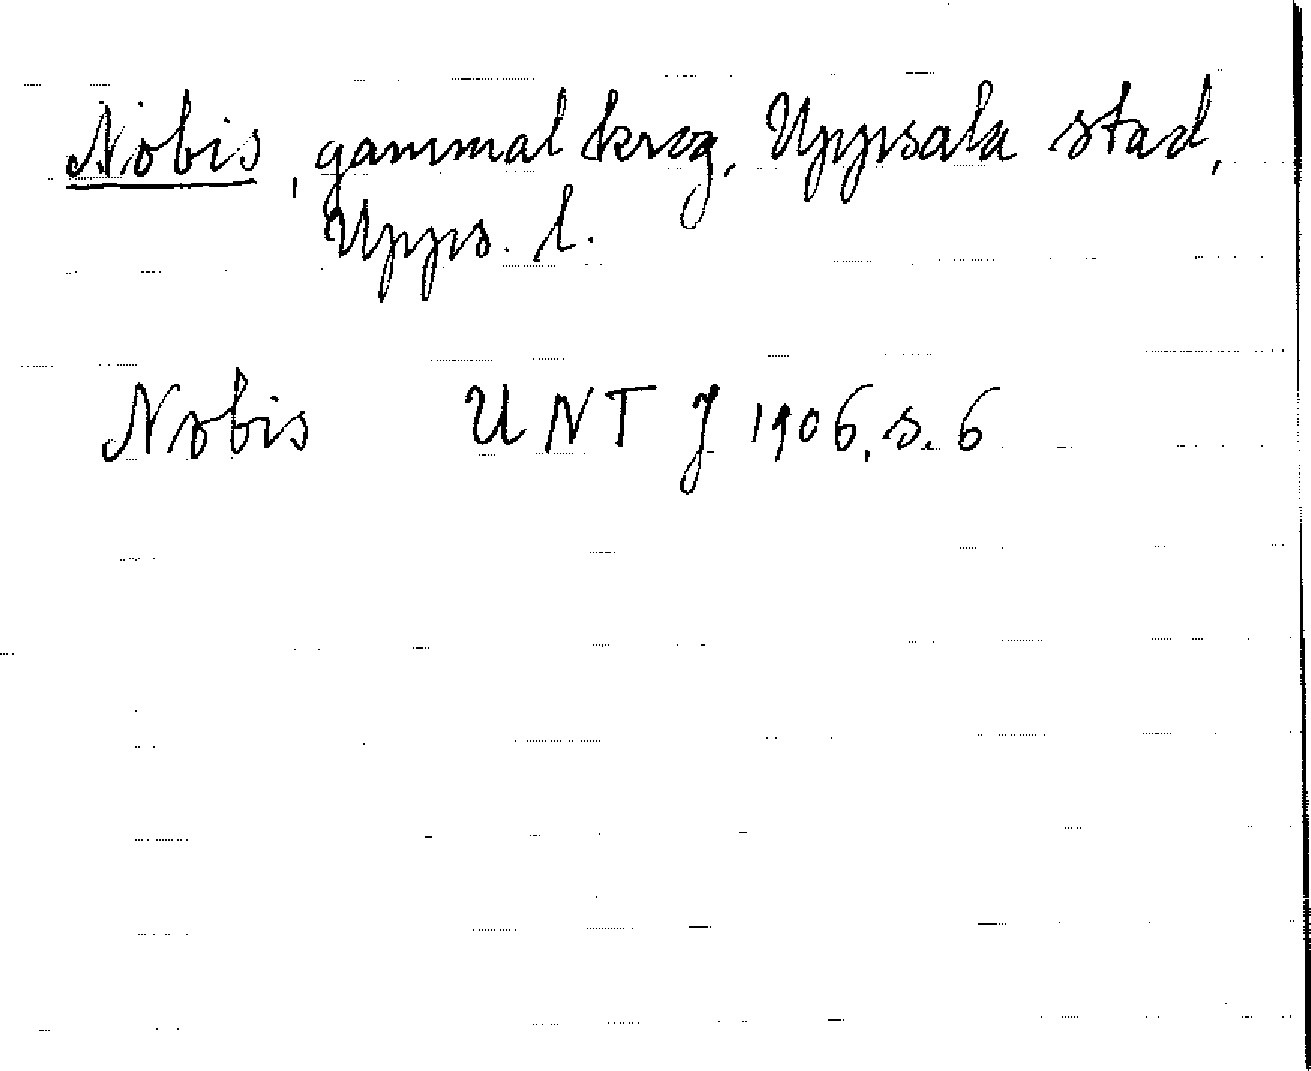 Nobis, gammal krog, Uppsala stad,
Upps. l.
Nobis UNT J 1906, s. 6